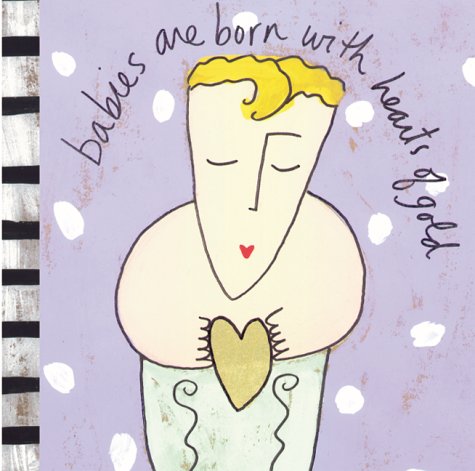 babies are born with hearts of gold